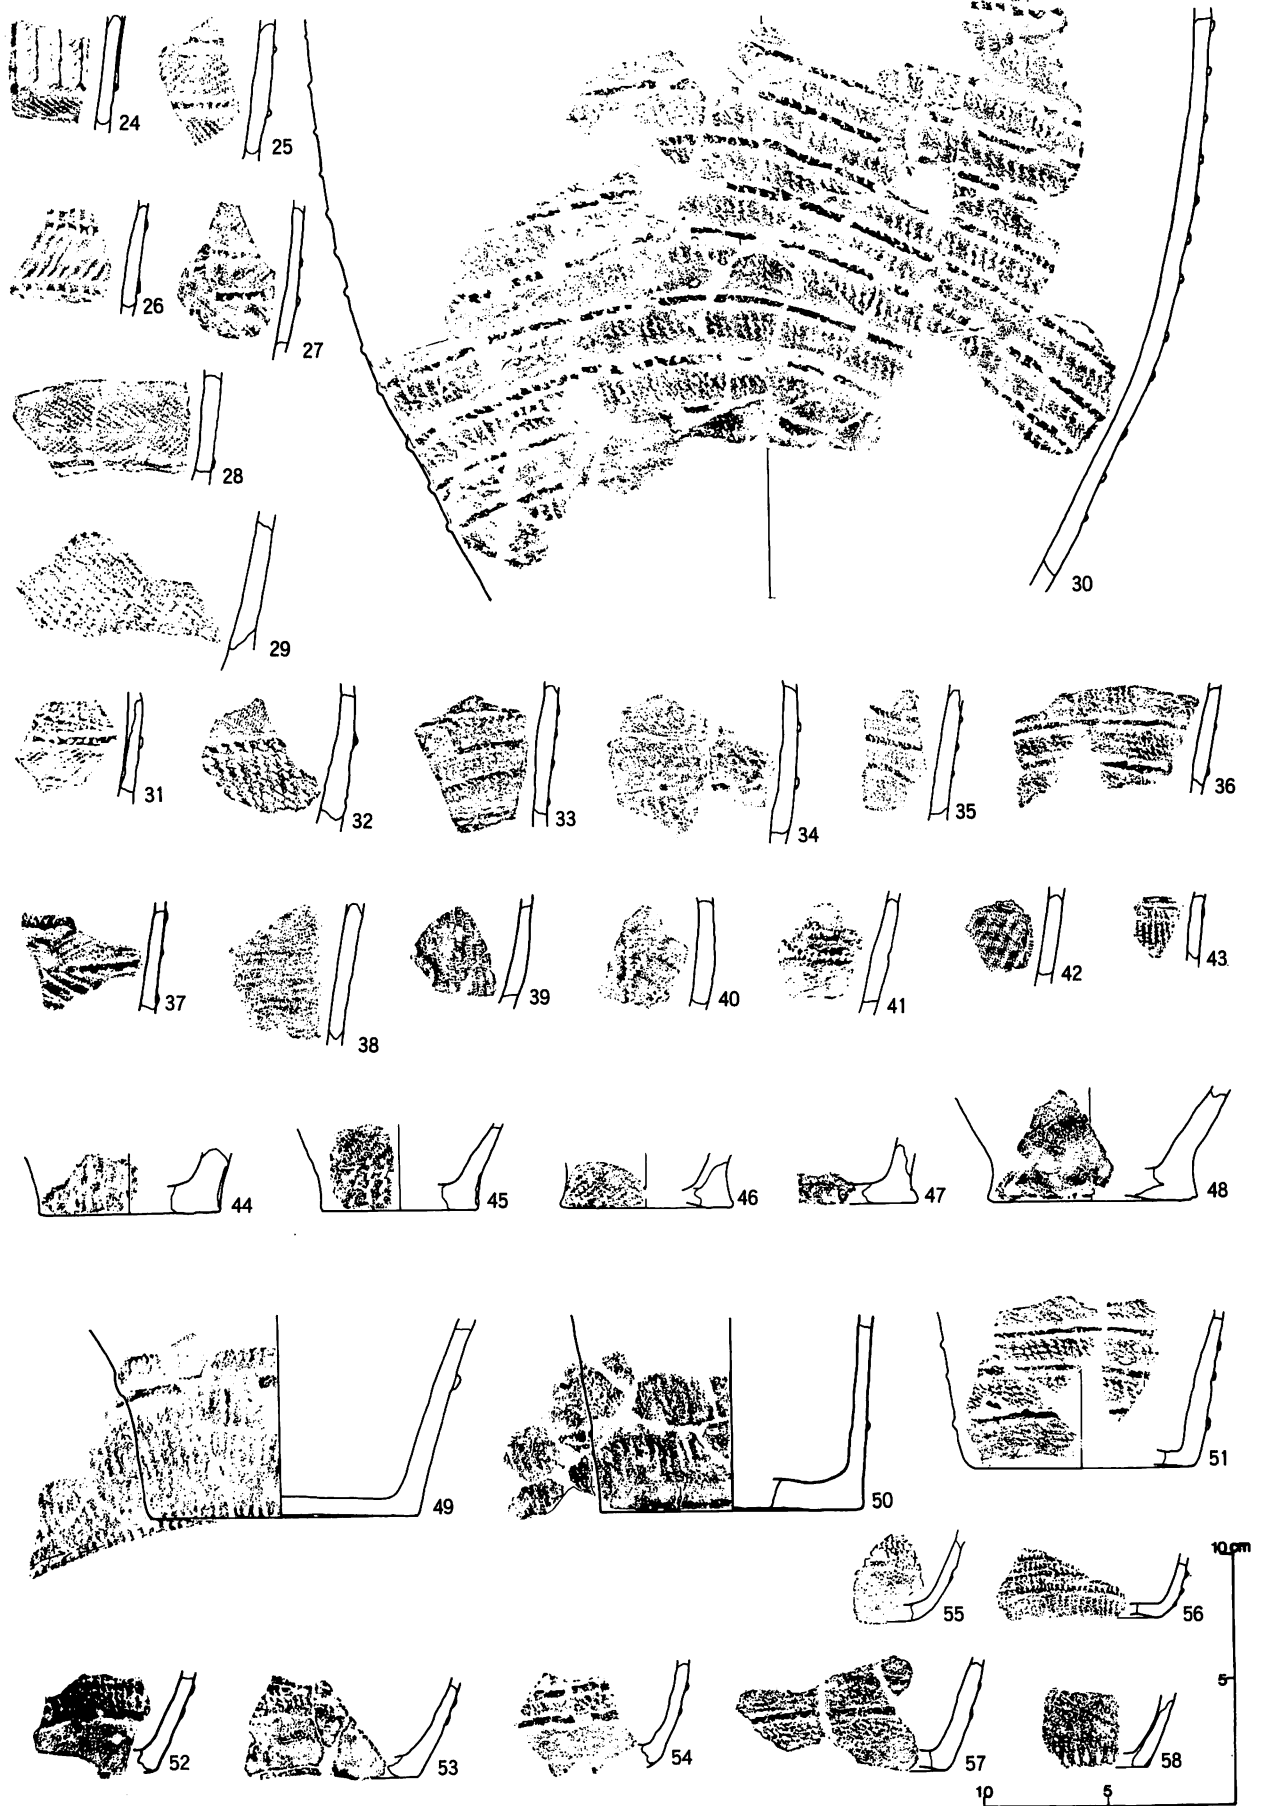 24
25
26
27
28
29
30
31
32
33
34
35
36
37
38
39
40
41
42
43
44
45
46
47
48
49
50
51
10 cm
55
56
5
52
53
54
57
58
10 5